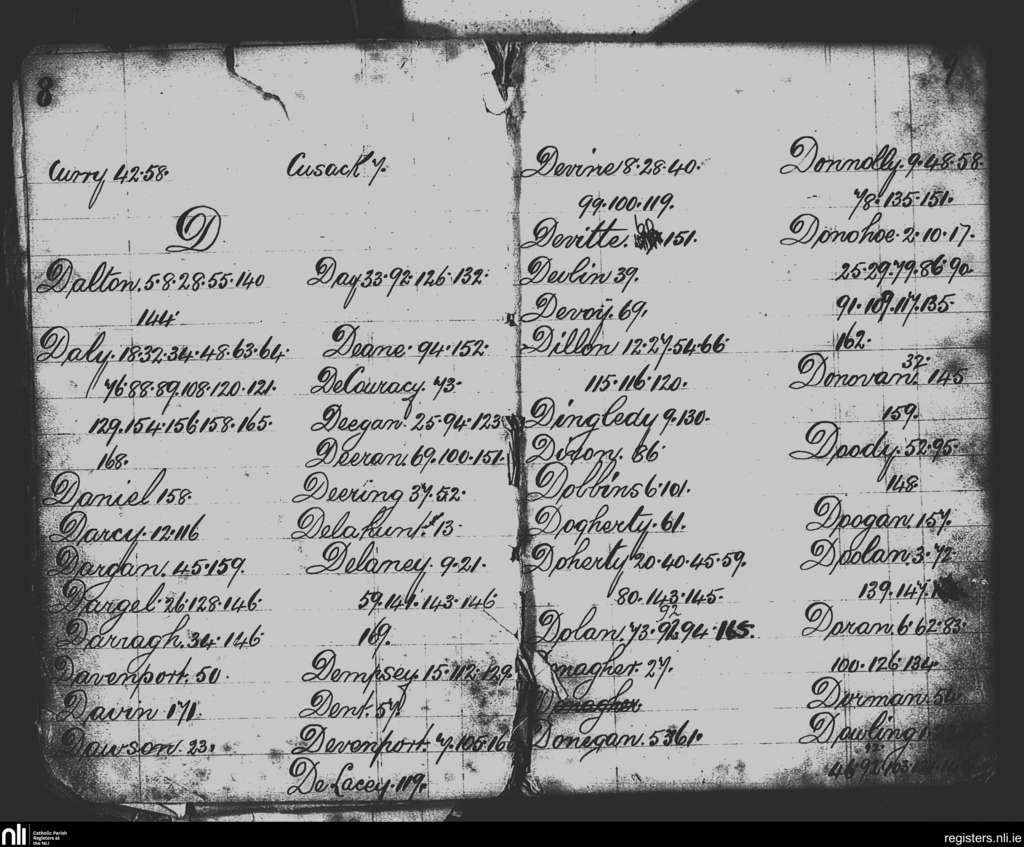 8
Curry 42.58.
Cusack 7.
D
Dalton. 5.8.28.55.140
144
Daly. 18.32.34.48.63.64.
76.88.89.108.120.121.
129.154.156.158.165.
168.
Daniel 158.
Darcy. 12.116
Dargan. 45.159.
Dargel. 26.128.146
Darragh. 34.146
Davenport. 50.
Davin 171.
Dawson. 23.
Day 33.92.126.132.
Deane. 94.152.
DeCouracy. 73.
Deegan. 25.94.123
Deeran. 69.100.151.
Deering 37.52.
Delahunt. 13.
Delaney. 9.21.
59.141.143.146
169.
Dempsey. 15.112.129.
Dent. 57.
Devenport. 7.105.
De Lacey. 119.
Devine 8.28.40.
99.100.119.
Devitte. 151.
Devlin 39.
Devoy. 69.
Dillon 12.27.54.66
115.116.120.
Dingledy 9.130.
Dixon. 86
Dobbins 6.101.
Dogherty. 61.
Doherty 20.40.45.59.
80.143.145.
92
Dolan. 73. 94.165.
27.
Donagher
Donegan. 53.61.
Donnolly. 9.48.58.
78.135.151.
Donohoe. 2.10.17.
25.29.79.86.90.
91.109.117.135
162.
32.
Donovan. 145
159.
Doody. 52.95.
148
Doogan. 157.
Doolan. 3.72
139.147.
Doran. 6.62.83.
100.126.134.
Dorman. 54
Dowling
92
46.92.103
nli
Catholic Parish
Registers at
the NLI
registers.nli.ie